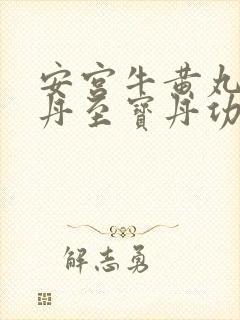 安宫牛黄丸
丹至寶丹功
解志勇